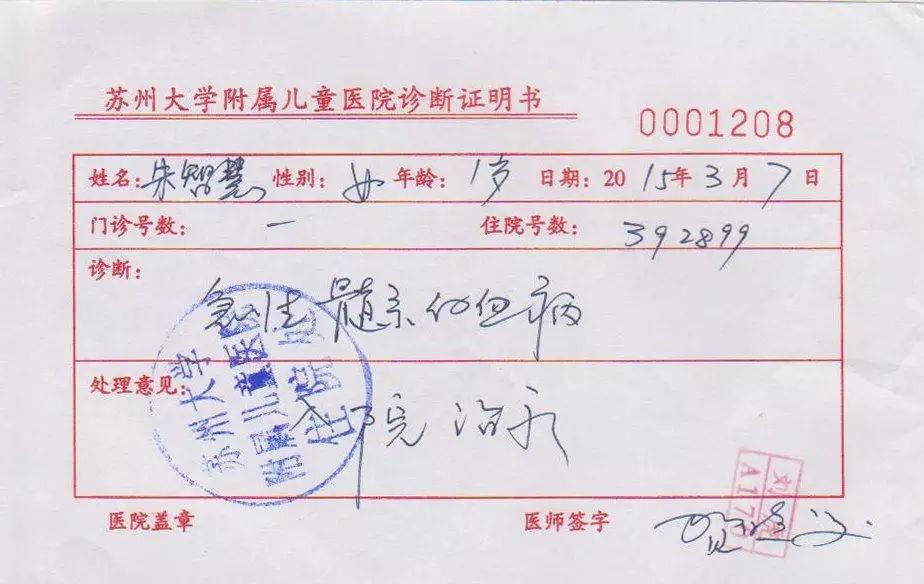 苏州大学附属儿童医院诊断证明书
0001208
姓名：朱智慧 性别：女 年龄：1岁 日期：2015年3月7日
门诊号数：一 住院号数：392899
诊断：
急性髓系白血病
处理意见：
入院治疗
苏州大学
附属儿童医院
住院处
医院盖章 医师签字